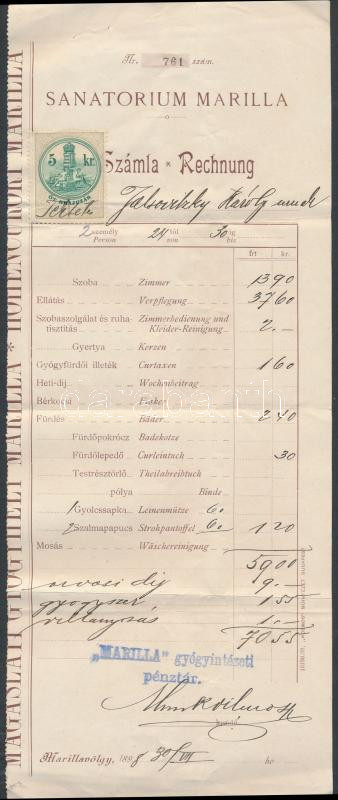 Nr. 761 szám.
SANATORIUM MARILLA
5 kr.
Számla * Rechnung
Jalsovitzky Károly urnak
2 személy 24 től 30 ig
Person von bis
frt kr.
Szoba Zimmer 13 90
Ellátás Verpflegung 37 60
Szobaszolgálat és ruha- Zimmerbedienung und
tisztitás Kleider-Reinigung 2.—
Gyertya Kerzen
Gyógyfürdői illeték Curtaxen 1 60
Heti-dij Wochenbeitrag
Bérkocsi Fiaker
Fürdés Bäder 2 40
Fürdőpokrócz Badekotze
Fürdőlepedő Curleintuch 30
Testrésztörlő Theilabreibtuch
pólya Binde
1 Gyolcssapka Leinenmütze 60
2 Szalmapapucs Strohpantoffel 60 1 20
Mosás Wäschereinigung
59 00
orvosi dij 9.—
gyógyszer 1 55
villanyozás 1.—
70 55
„MARILLA” gyógyintézeti
pénztár.
Marillavölgy, 1898 30/VII hó
MAGASLATI GYÓGYHELY MARILLA * HÖHENCURORT MARILLA